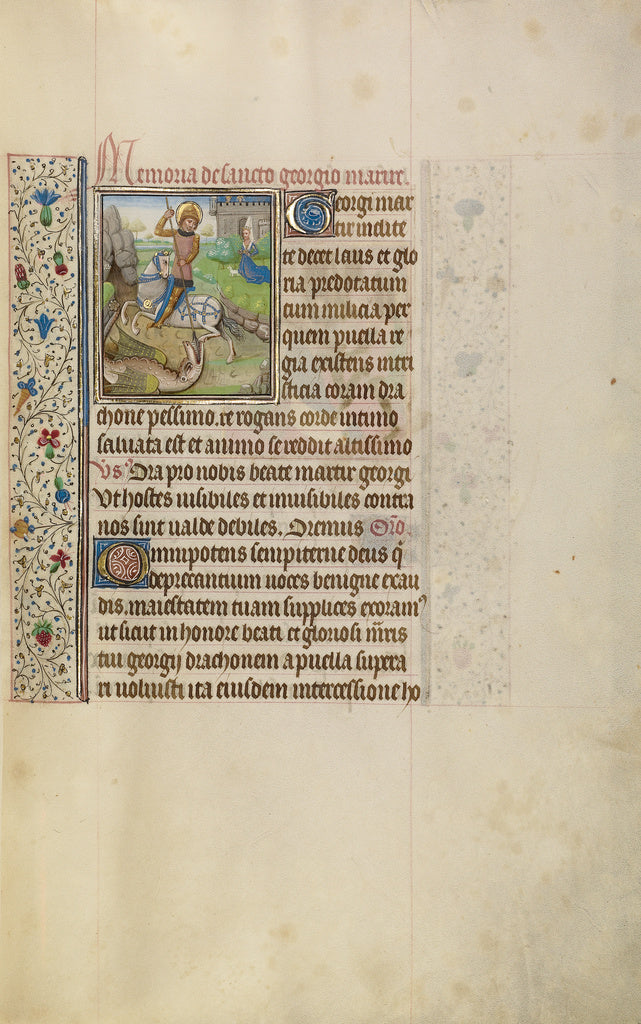 Memoria de sancto georgio martire.
Georgi mar
tir inclite
te decet laus et glo
ria predotatum
tum milicia per
quem puella re
gia existens in tri
sticia coram dra
chone pessimo. te rogans corde intimo
saluata est et animo se reddit altissimo
Vs. Ora pro nobis beate martir georgi
Vt hostes uisibiles et inuisibiles contra
nos sint ualde debiles. Oremus Oro.
Omnipotens sempiterne deus q̄
deprecantium uoces benigne exau
dis. maiestatem tuam supplices exoram᾽
ut sicut in honore beati et gloriosi m̄ris
tui georgij drachonem a puella supera
ri uoluisti ita eiusdem intercessione ho